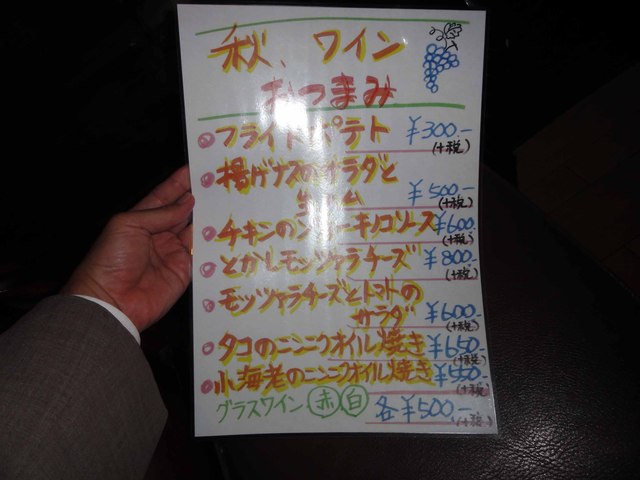 秋、ワイン
おつまみ
フライドポテト ¥300.-
(+税)
揚げナスのサラダと
生ハム ¥500.-
(+税)
チキンのクリーキノコソース ¥600.
(+税)
とかしモッツァラチーズ ¥800.-
(+税)
モッツァラチーズとトマトの
サラダ ¥600.-
(+税)
タコのニンニクオイル焼き ¥650.-
(+税)
小海老のニンニクオイル焼き ¥550.-
(+税)
グラスワイン 赤 白 各¥500.-
(+税)